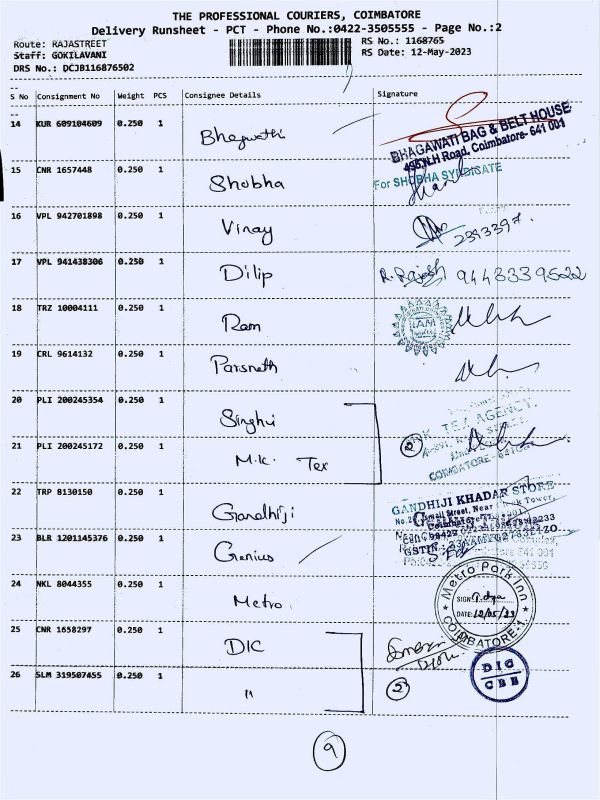 THE PROFESSIONAL COURIERS, COIMBATORE
Delivery Runsheet - PCT - Phone No.:0422-3505555 - Page No.:2
Route: RAJASTREET
Staff: GOKILAVANI
DRS No.: DCJB116876502
RS No.: 1168765
RS Date: 12-May-2023
S No Consignment No Weight PCS Consignee Details Signature
14 KUR 609104609 0.250 1 Bhagwathi
BHAGAWATI BAG & BELT HOUSE
498, N.H Road, Coimbatore- 641 001
15 CNR 1657448 0.250 1 Shobha
For SHOBHA SYNDICATE
16 VPL 942701898 0.250 1 Vinay
2393397.
17 VPL 941438306 0.250 1 Dilip R. Rajesh 9443339522
18 TRZ 10004111 0.250 1 Ram
RAM
19 CRL 9614132 0.250 1 Parsnath
20 PLI 200245354 0.250 1 Singhvi
TEA AGENCY.
21 PLI 200245172 0.250 1 M.K. Tex
2
COIMBATORE - 641001
22 TRP 8130150 0.250 1 Gandhiji
GANDHIJI KHADAR STORE
Small Street, Near Clock Tower,
23 BLR 1201145376 0.250 1 Genius
GSTIN
24 NKL 8044355 0.250 1 Metro
Metro Park Inn
SIGN:
DATE: 12/05/23
COIMBATORE-1
25 CNR 1658297 0.250 1 DIC
DIC
CBE
26 SLM 319507455 0.250 1 "
2
9